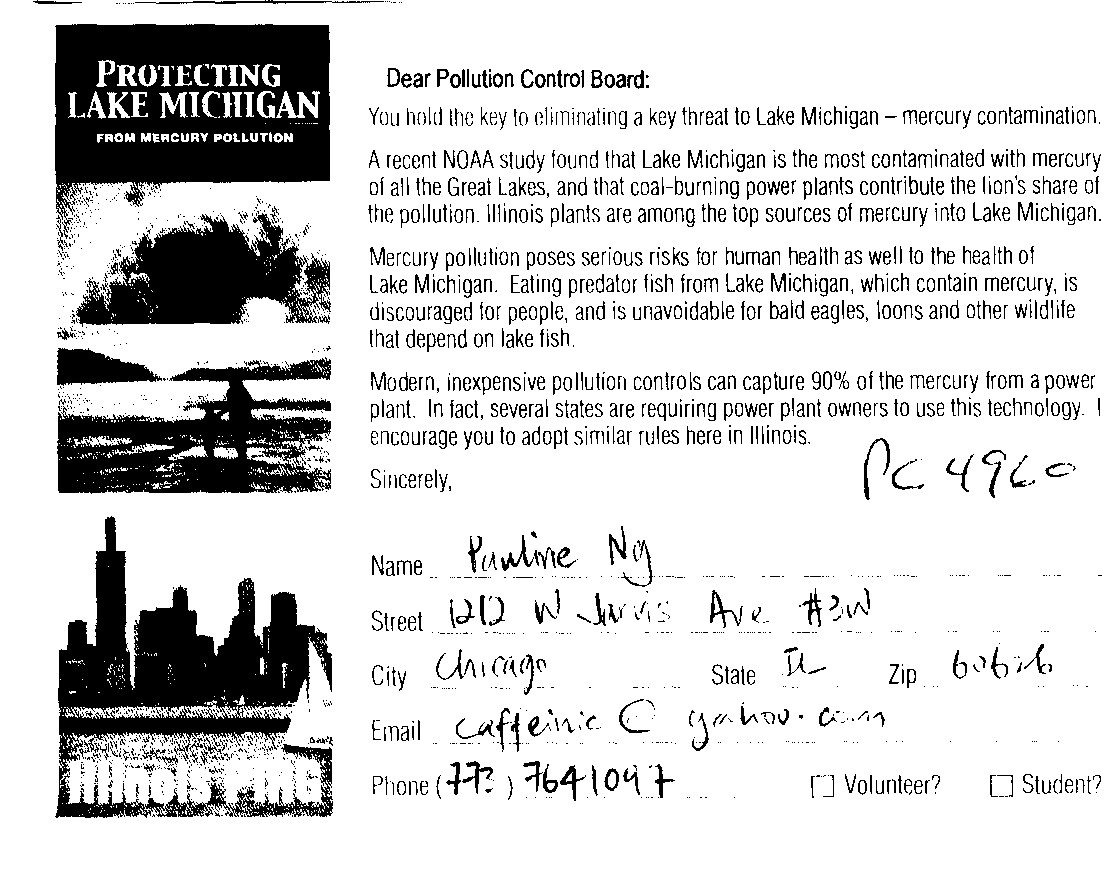 PROTECTING
LAKE MICHIGAN
FROM MERCURY POLLUTION
Illinois PIRG
Dear Pollution Control Board:
You hold the key to eliminating a key threat to Lake Michigan – mercury contamination.
A recent NOAA study found that Lake Michigan is the most contaminated with mercury
of all the Great Lakes, and that coal-burning power plants contribute the lion's share of
the pollution. Illinois plants are among the top sources of mercury into Lake Michigan.
Mercury pollution poses serious risks for human health as well to the health of
Lake Michigan. Eating predator fish from Lake Michigan, which contain mercury, is
discouraged for people, and is unavoidable for bald eagles, loons and other wildlife
that depend on lake fish.
Modern, inexpensive pollution controls can capture 90% of the mercury from a power
plant. In fact, several states are requiring power plant owners to use this technology. I
encourage you to adopt similar rules here in Illinois.
Sincerely,
PC 4960
Name Pauline Ng
Street 1212 W Jarvis Ave #3W
City Chicago State IL Zip 60626
Email caffeinic@yahoo.com
Phone (773) 7641097 Volunteer? Student?